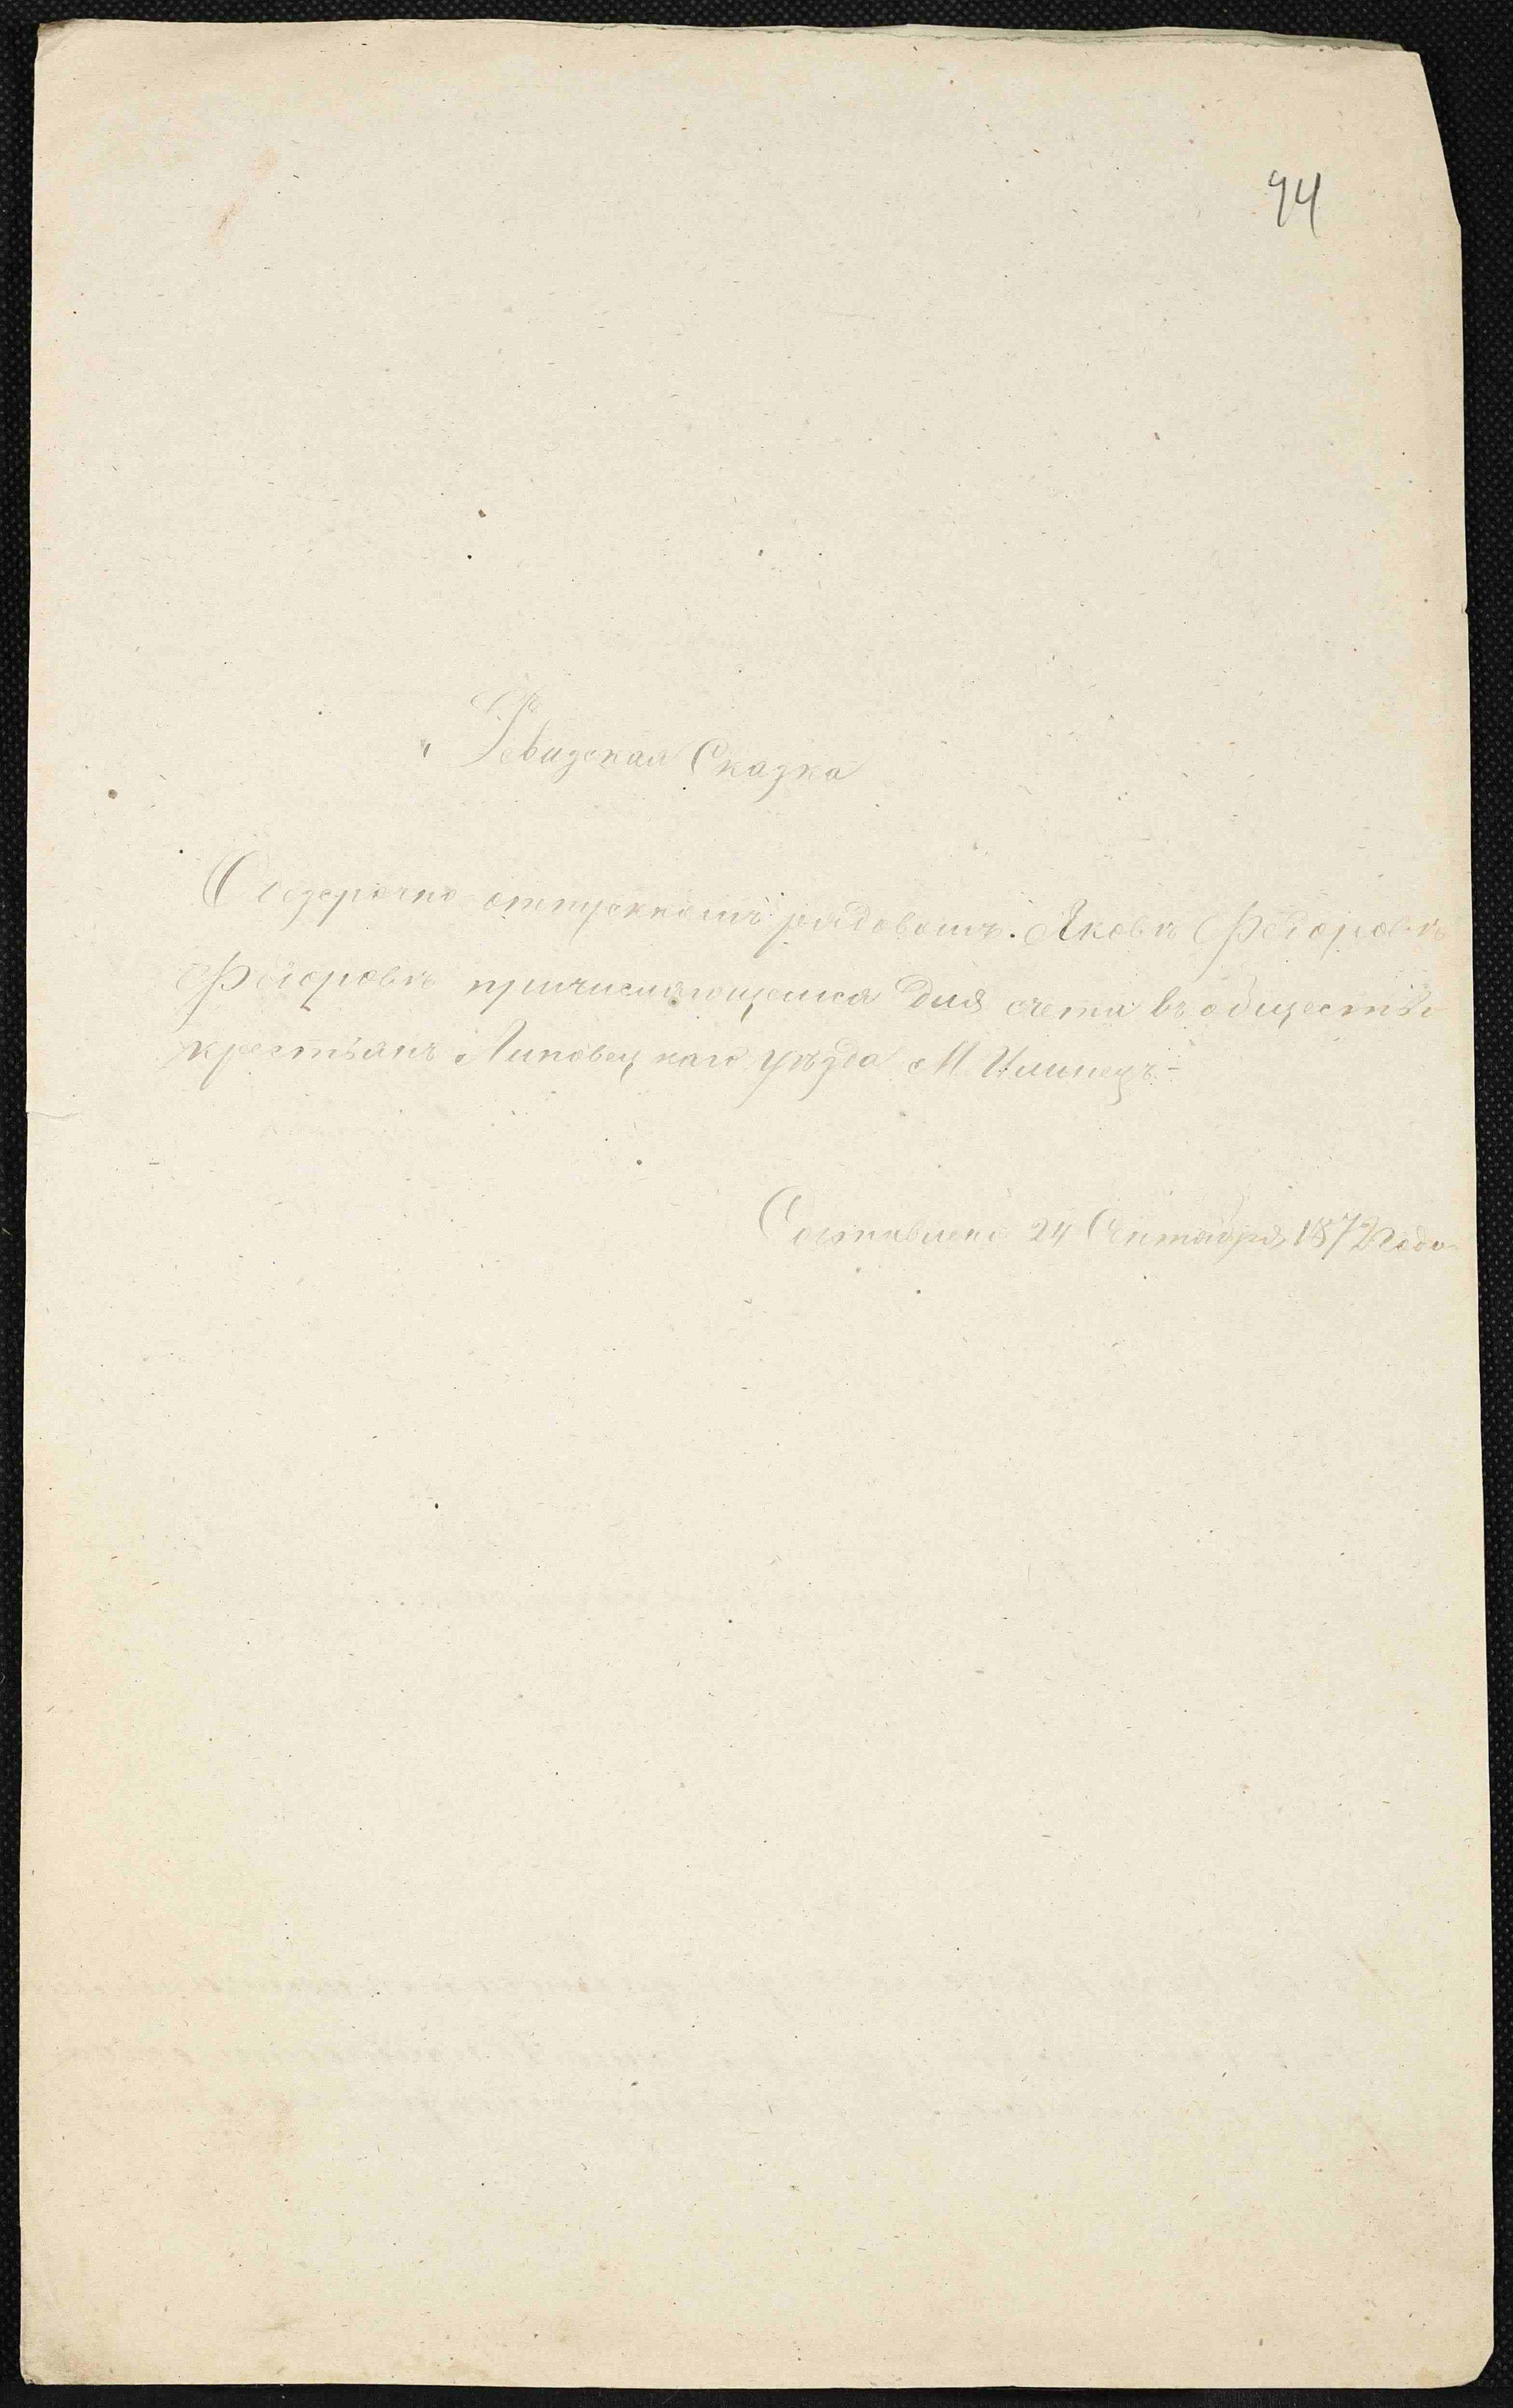 94
Ревизская Сказка
О безсрочно отпускномъ рядовомъ. Яковѣ Федоровѣ
Федоровѣ причисляющемся для счета въ общество
крестьянъ Липовецкаго уѣзда М. Илинецъ-
Составлена 24 Сентября 1872 года